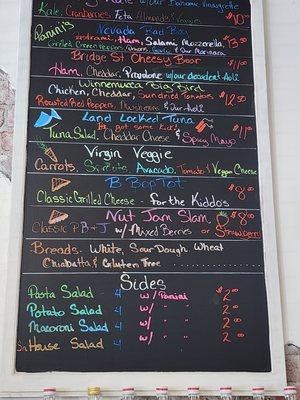 Kale, Cranberries, Feta, Almonds & Veggies $10.00
Panini's
Nevada Bad Boy
Pastrami, Ham, Salami, Mozzarella, $13.50
Bridge St Cheesy Boar
Ham, Cheddar, Provolone w/our decadent Aoli $11.00
Winnemucca Big Bird
Chicken, Cheddar, Sun dried Tomatoes $12.50
Roasted Red Peppers, Mushrooms & Our Aoli
Land Locked Tuna
got some kick!
Tuna Salad, Cheddar Cheese & Spicy Mayo $11.00
Virgin Veggie
Carrots, Sprouts, Avacado, Tomato & Vegan Cheese
B Bop Tot
Classic Grilled Cheese - for the Kiddo's $8.00
Nut Jam Slam $8.00
Classic PB & J w/ Mixed Berries or Strawberry
Breads: White, Sour Dough, Wheat
Chiabatta & Gluten Free
Sides
Pasta Salad 4 w/ Panini $2.00
Potato Salad 4 w/ " " $2.00
Macaroni Salad 4 w/ " " $2.00
Sm House Salad 4 w/ " " $2.00